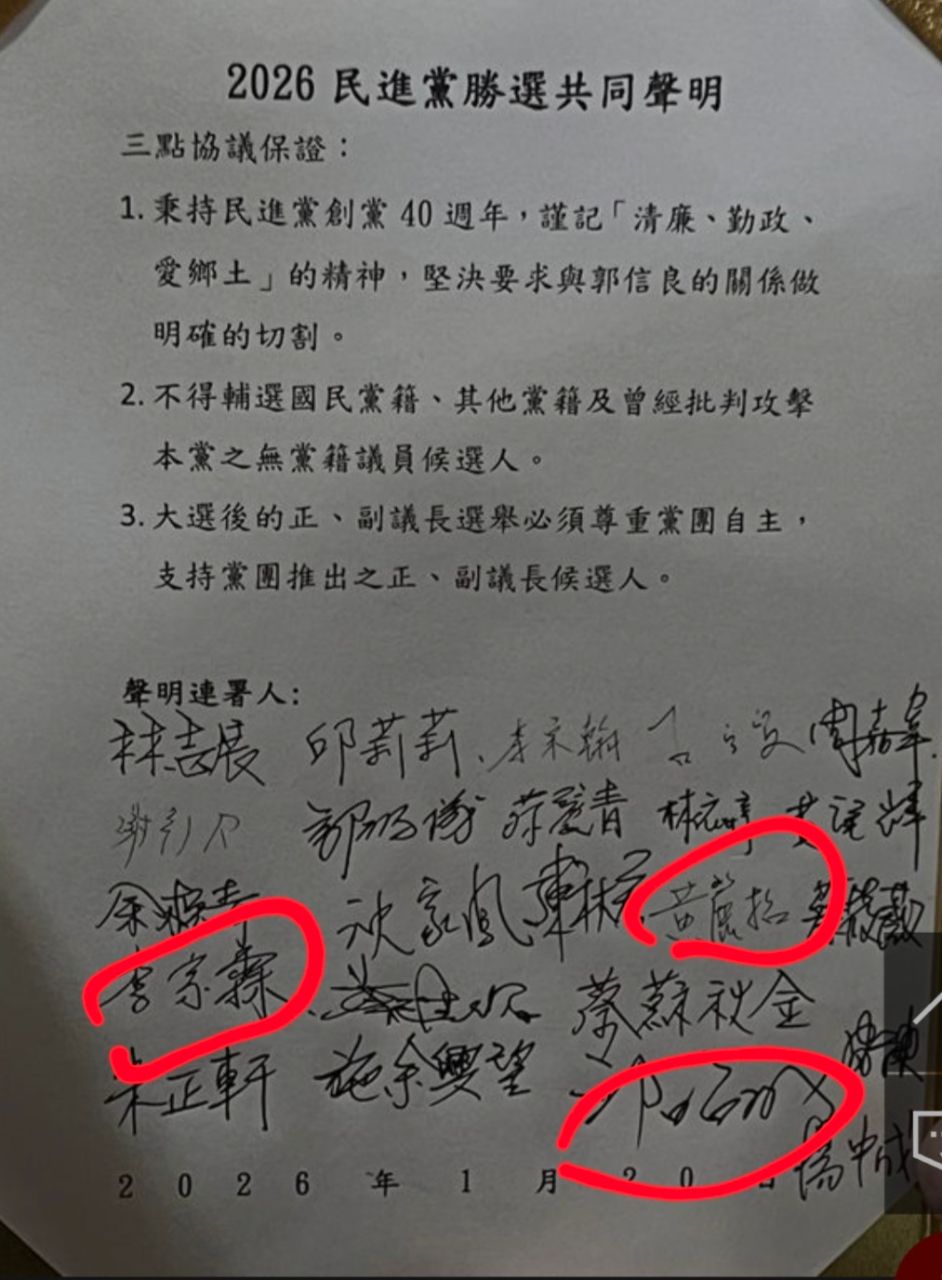 2026民進黨勝選共同聲明
三點協議保證：
1. 秉持民進黨創黨 40 週年，謹記「清廉、勤政、
愛鄉土」的精神，堅決要求與郭信良的關係做
明確的切割。
2. 不得輔選國民黨籍、其他黨籍及曾經批判攻擊
本黨之無黨籍議員候選人。
3. 大選後的正、副議長選舉必須尊重黨團自主，
支持黨團推出之正、副議長候選人。
聲明連署人:
林志展 邱莉莉 李宗翰 周嘉韋
蔡筱薇
李宗霖 蔡蘇秋金
朱正軒 施余興望
2026年1月20日